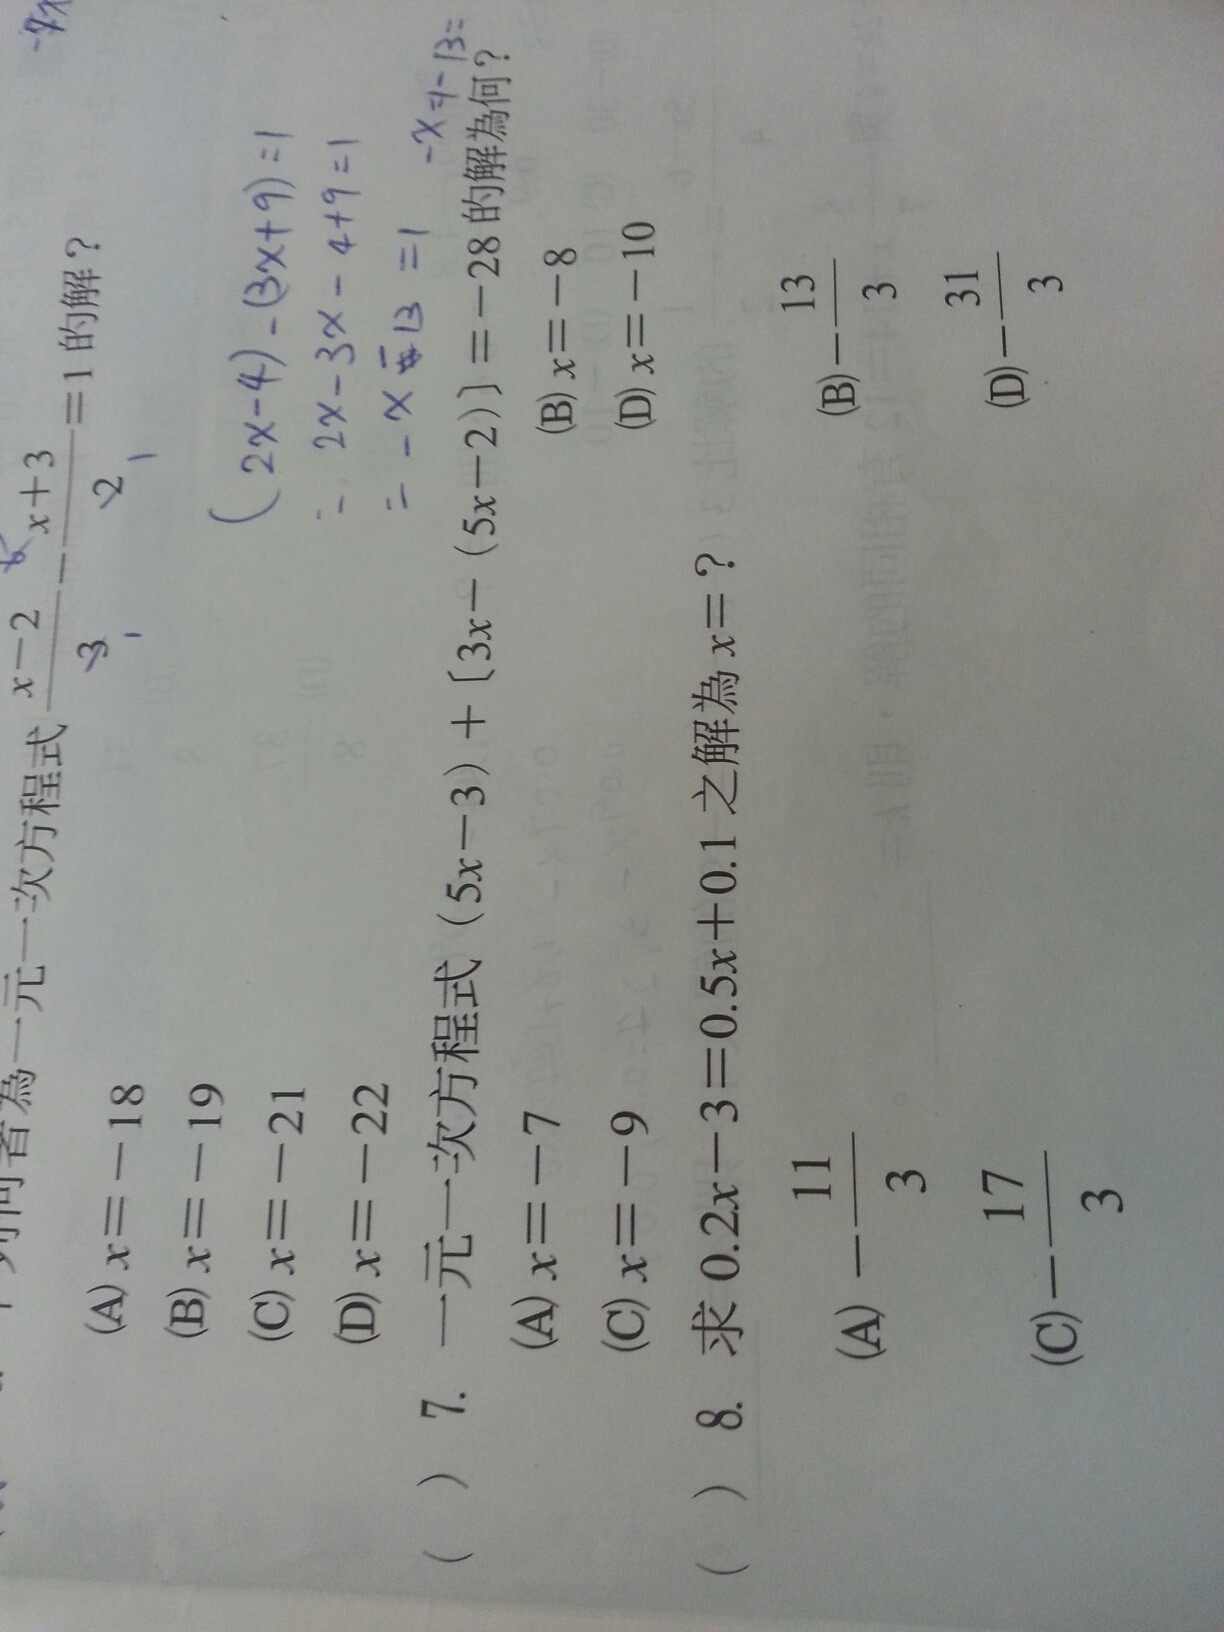 下列何者為一元一次方程式 \frac{x-2}{3} - \frac{x+3}{2} = 1 的解？
(A) x=-18
(B) x=-19
(C) x=-21
(D) x=-22
(2x-4)-(3x+9)=1
= 2x-3x-4+9=1
= -x-13=1
-x=1-13=
( ) 7. 一元一次方程式 (5x-3)+〔3x-(5x-2)〕=-28 的解為何？
(A) x=-7 (B) x=-8
(C) x=-9 (D) x=-10
( ) 8. 求 0.2x-3=0.5x+0.1 之解為 x=？
(A) -\frac{11}{3} (B) -\frac{13}{3}
(C) -\frac{17}{3} (D) -\frac{31}{3}